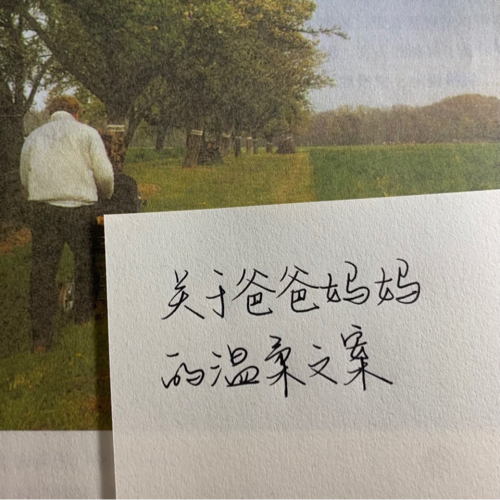 关于爸爸妈妈
的温柔文案